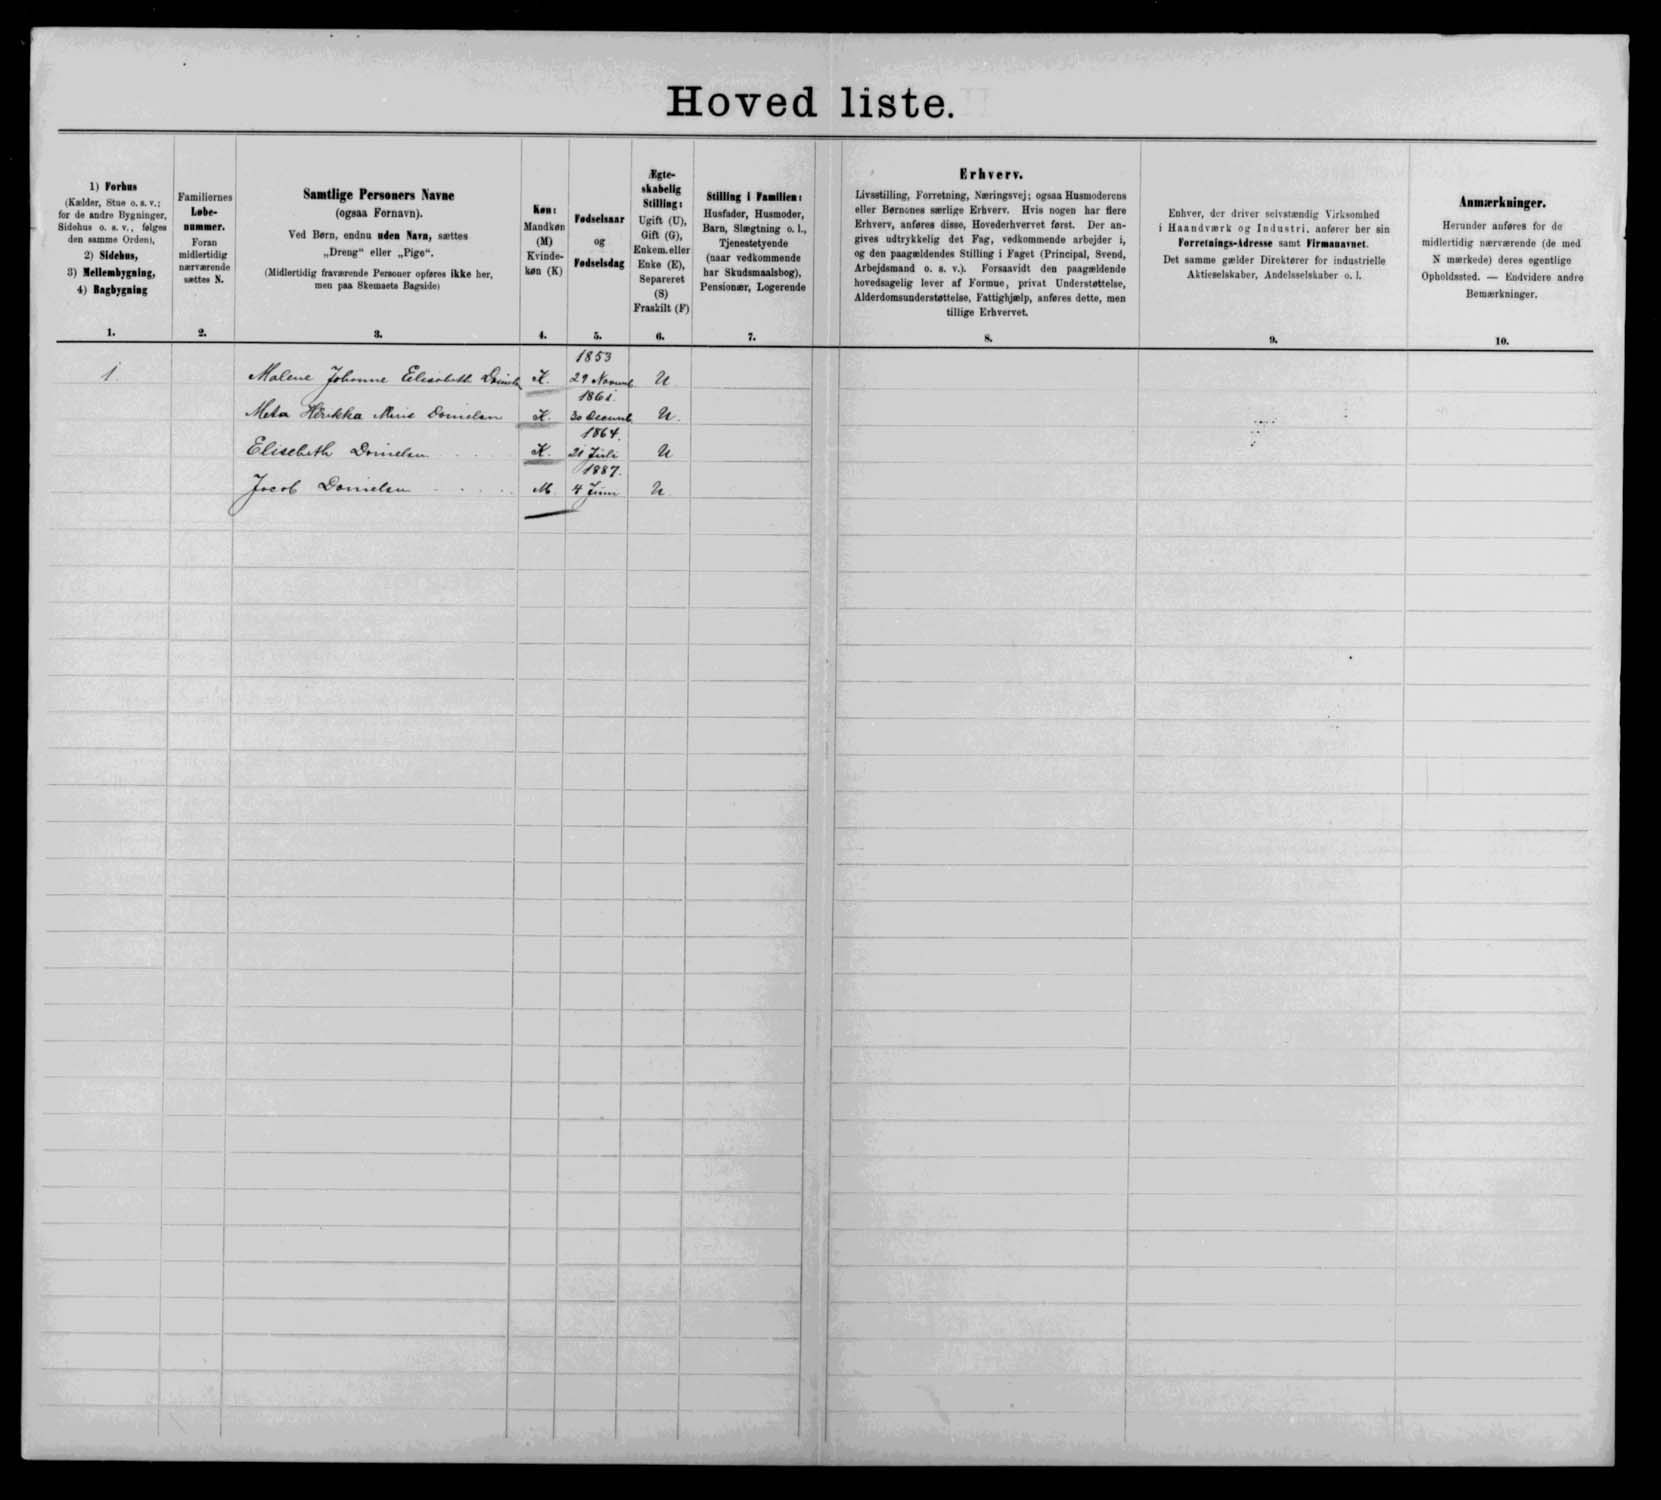 Hoved liste.
1) Forhus
(Kælder, Stue o. s. v.;
for de andre Bygninger,
Sidehus o. s. v., følges
den samme Orden),
2) Sidehus,
3) Mellembygning,
4) Bagbygning
1.
Familiernes
Løbe-
nummer.
Foran
midlertidig
nærværende
sættes N.
2.
Samtlige Personers Navne
(ogsaa Fornavn).
Ved Børn, endnu uden Navn, sættes
„Dreng" eller „Pige".
(Midlertidig fraværende Personer opføres ikke her,
men paa Skemaets Bagside)
3.
Køn:
Mandkøn
(M)
Kvinde-
køn (K)
4.
Fødselsaar
og
Fødselsdag
5.
Ægte-
skabelig
Stilling:
Ugift (U),
Gift (G),
Enkem. eller
Enke (E),
Separeret
(S)
Fraskilt (F)
6.
Stilling i Familien:
Husfader, Husmoder,
Barn, Slægtning o. l.,
Tjenestetyende
(naar vedkommende
har Skudsmaalsbog),
Pensionær, Logerende
7.
Erhverv.
Livsstilling, Forretning, Næringsvej; ogsaa Husmoderens
eller Børnenes særlige Erhverv. Hvis nogen har flere
Erhverv, anføres disse, Hovederhvervet først. Der an-
gives udtrykkelig det Fag, vedkommende arbejder i,
og den paagældendes Stilling i Faget (Principal, Svend,
Arbejdsmand o. s. v.). Forsaavidt den paagældende
hovedsagelig lever af Formue, privat Understøttelse,
Alderdomsunderstøttelse, Fattighjælp, anføres dette, men
tillige Erhvervet.
8.
Enhver, der driver selvstændig Virksomhed
i Haandværk og Industri, anfører her sin
Forretnings-Adresse samt Firmanavnet.
Det samme gælder Direktører for industrielle
Aktieselskaber, Andelsselskaber o. l.
9.
Anmærkninger.
Herunder anføres for de
midlertidig nærværende (de med
N mærkede) deres egentlige
Opholdssted. — Endvidere andre
Bemærkninger.
10.
1853
1. Malene Johanne Elisabeth K. 29 Novemb U
1861.
Meta Marie Danielsen K. 30 Decemb U.
1864.
Elisebeth Danielsen K. 31 Juli U
1887.
Jacob Danielsen M. 4 Juni U.